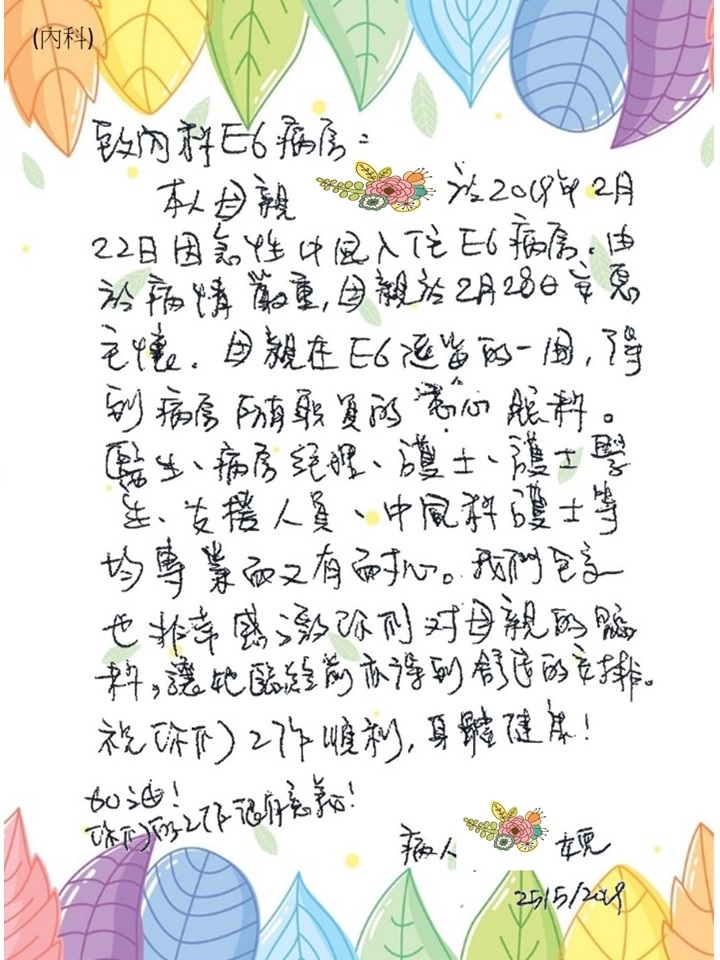 (內科)
致內科E6病房:
本人母親 於2019年2月
22日因急性中風入住E6病房,由
於病情嚴重,母親於2月28日安息
主懷。母親在E6逗留的一周,得
到病房所有職員的悉心照料。
醫生、病房經理、護士、護士學
生、支援人員、中風科護士等
均專業而又有耐心。我們全家
也非常感激你們对母親的照
料,讓她臨終前亦得到舒适的安排。
祝你们工作順利,身體健康!
加油!
你们的工作很有意義!
病人
25/5/2019